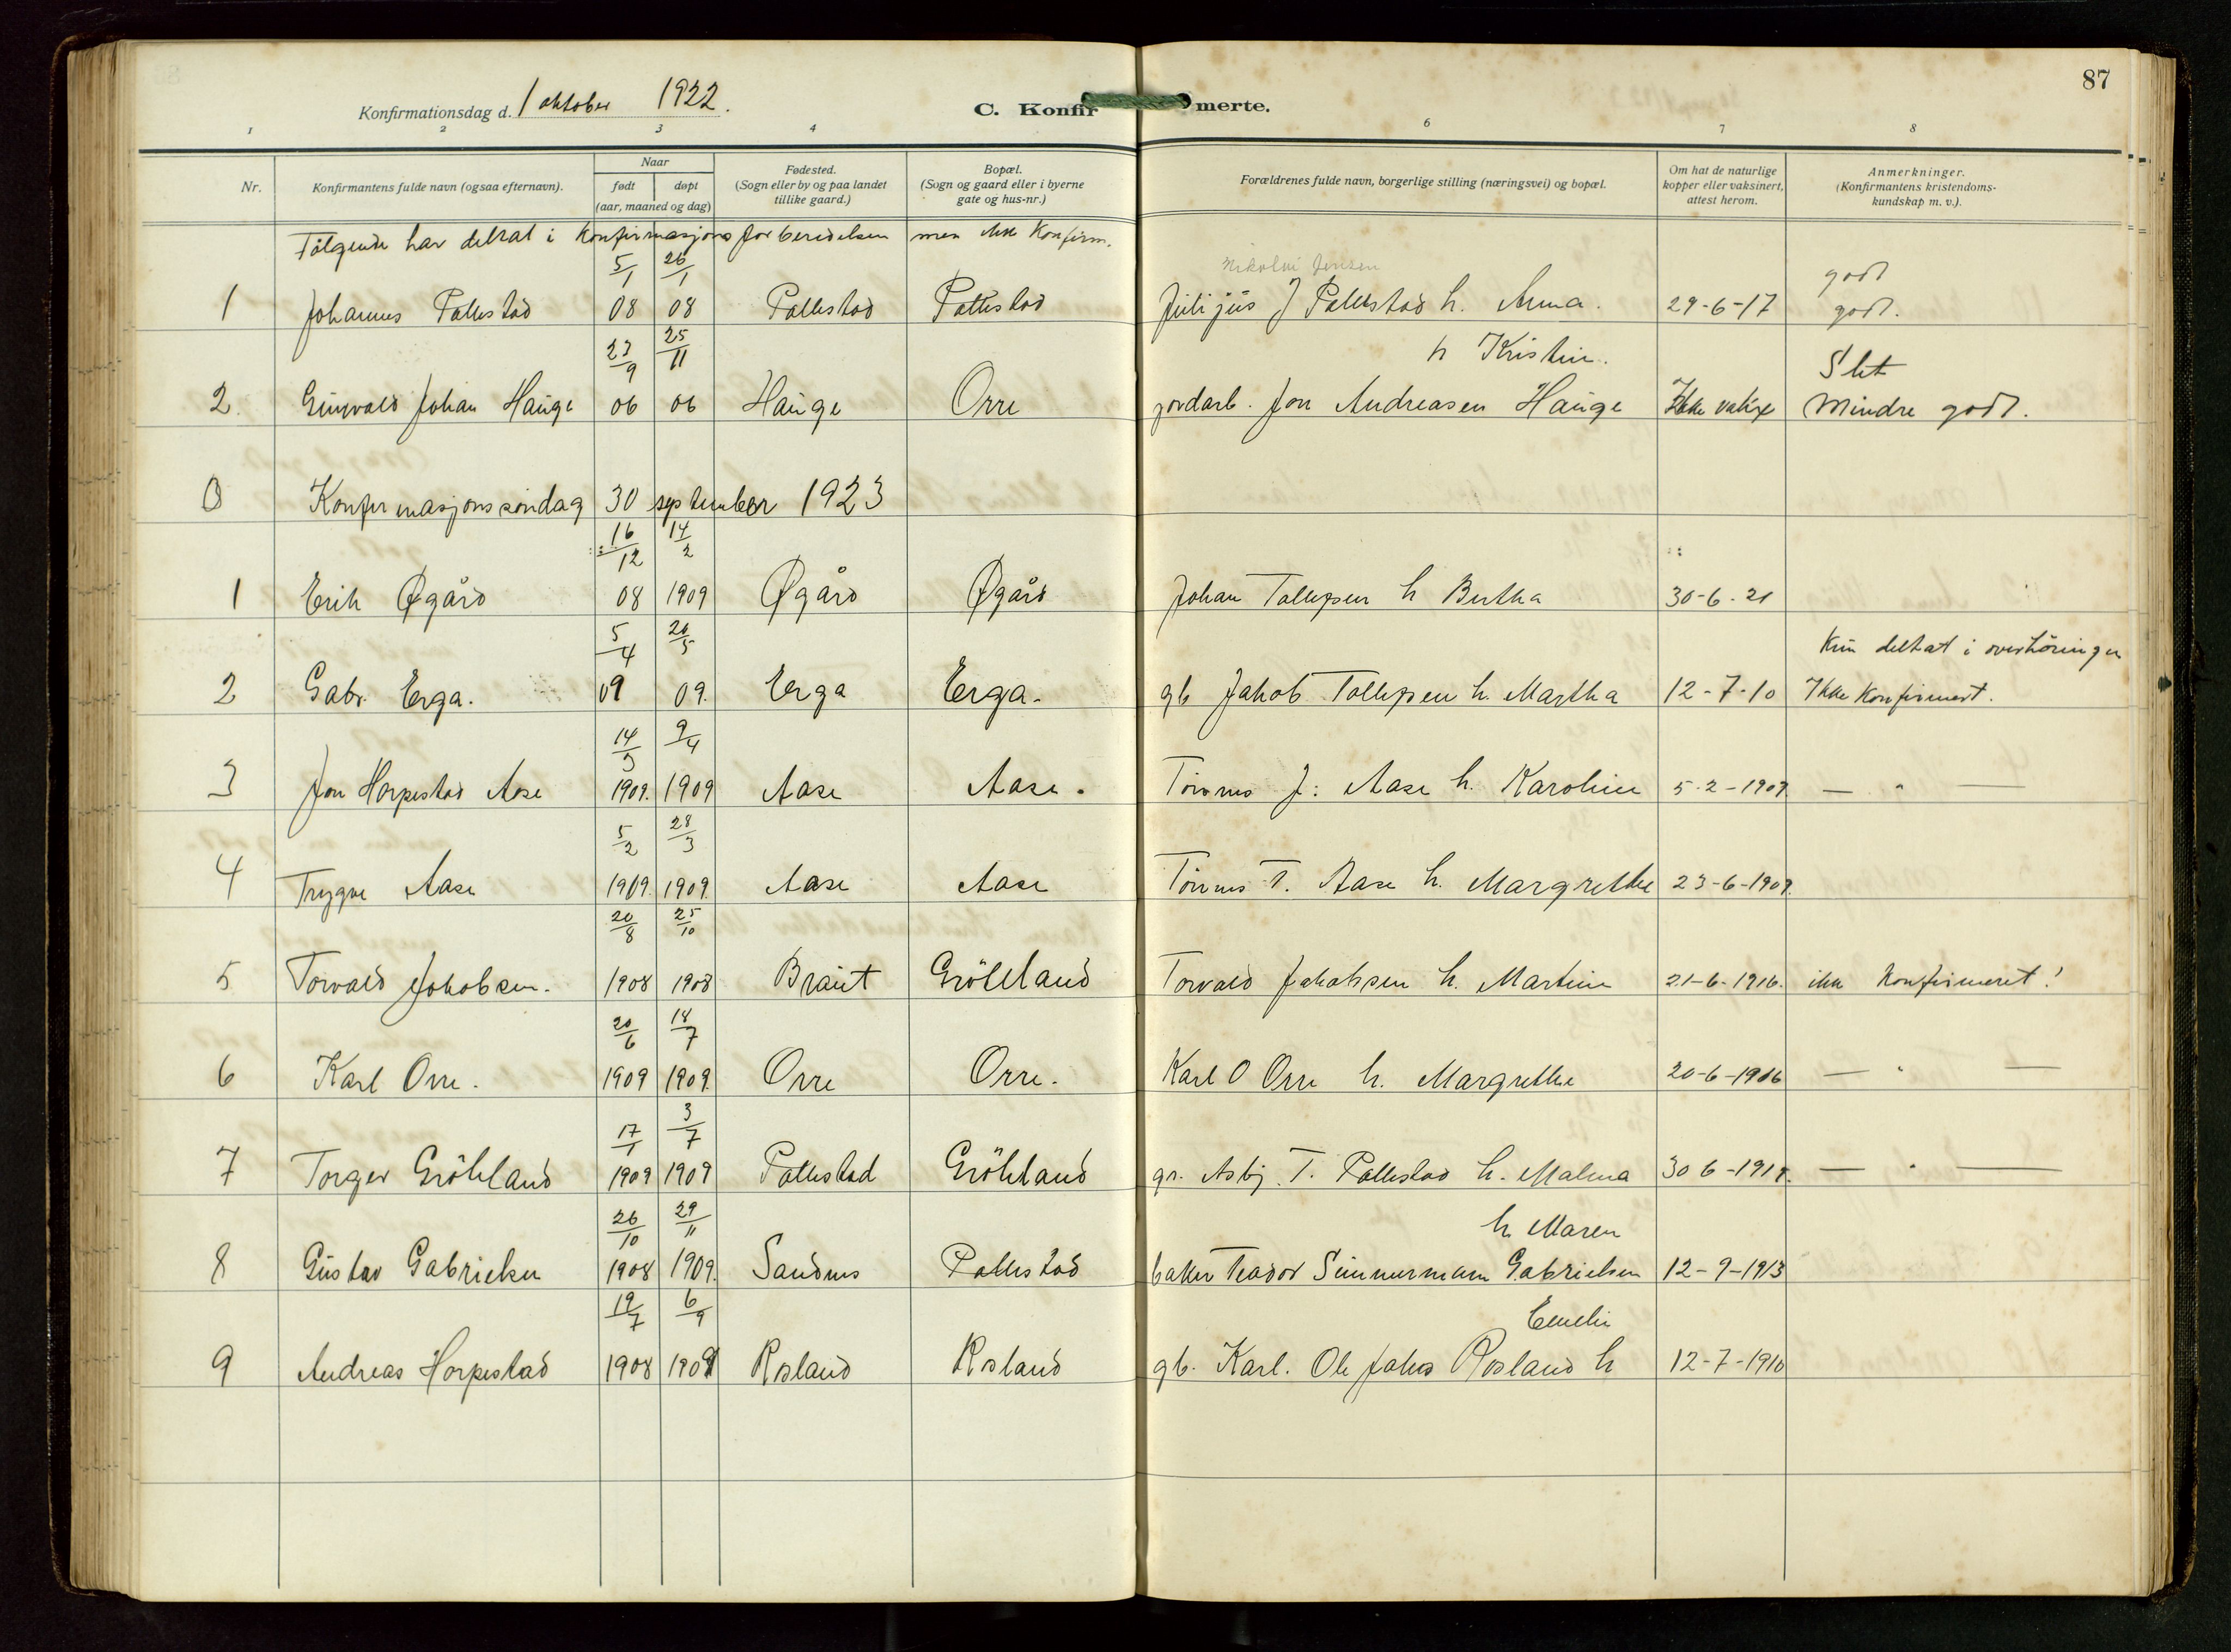 87
Konfirmationsdag d. 1 oktober 1922.
C. Konfirmerte.
1 2 3 4 6 7 8
Nr. Konfirmantens fulde navn (ogsaa efternavn). Naar født døpt (aar, maaned og dag) Fødested. (Sogn eller by og paa landet tillike gaard.) Bopæl. (Sogn og gaard eller i byerne gate og hus-nr.) Forældrenes fulde navn, borgerlige stilling (næringsvei) og bopæl. Om hat de naturlige kopper eller vaksinert, attest herom. Anmerkninger. (Konfirmantens kristendoms-kundskap m. v.).
Følgende har deltat i Konfirmasjons forberedelsen men ikke Konfirm.
5/1 26/1 Nikolai Jensen godt
1 Johannes Pollestad 08 08 Pollestad Pollestad Julijus J Pollestad h. Anna. 29-6-17 godt.
23/9 25/11 h Kristin. Slet
2. Gunvald Johan Hauge 06 06 Hauge Orre jordarb. Jon Andreasen Hauge Ikke Mindre godt.
Konfirmasjonssøndag 30 september 1923
16/12 14/2
1 Erik Øgård 08 1909 Øgård Øgård Johan Tollefsen h Bertha 30-6-21
5/4 20/5 Kun deltat i overhøringen
2 Gabr. Erga. 09 09. Erga Erga. gb Jakob Tollefsen h. Martha 12-7-10 Ikke Konfirmert.
14/3 9/4
3 Jon Horpestad Aase 1909. 1909 Aase Aase. Tønnes J: Aase h. Karoline 5-2-1909. — " —
5/2 28/3
4 Trygve Aase 1909. 1909. Aase Aase Tønnes T. Aase h. Margrethe 23-6-1909.
20/8 25/10
5 Torvald Jakobsen. 1908 1908 Braut Grödeland Torvald Jakobsen h. Martine 21-6-1916. ikke Konfirmeret!
20/6 18/7
6 Karl Orre. 1909 1909. Orre Orre. Karl O Orre h. Margrethe 20-6-1916 — " —
17/1 3/7
7 Torger Grödeland 1909 1909 Pollestad Grödeland Asbj. T. Pollestad h. Malena 30 6-1918. — " —
26/10 29/11 h Maren
8 Gustav Gabrielsen 1908 1909. Sandnes Pollestad baker Teodor Simmermann Gabrielsen 12-9-1913
19/7 6/9 Emelie
9 Andreas Horpestad 1908 1909 Rosland Rosland gb. Karl. Ole Johs Rosland h 12-7-1910